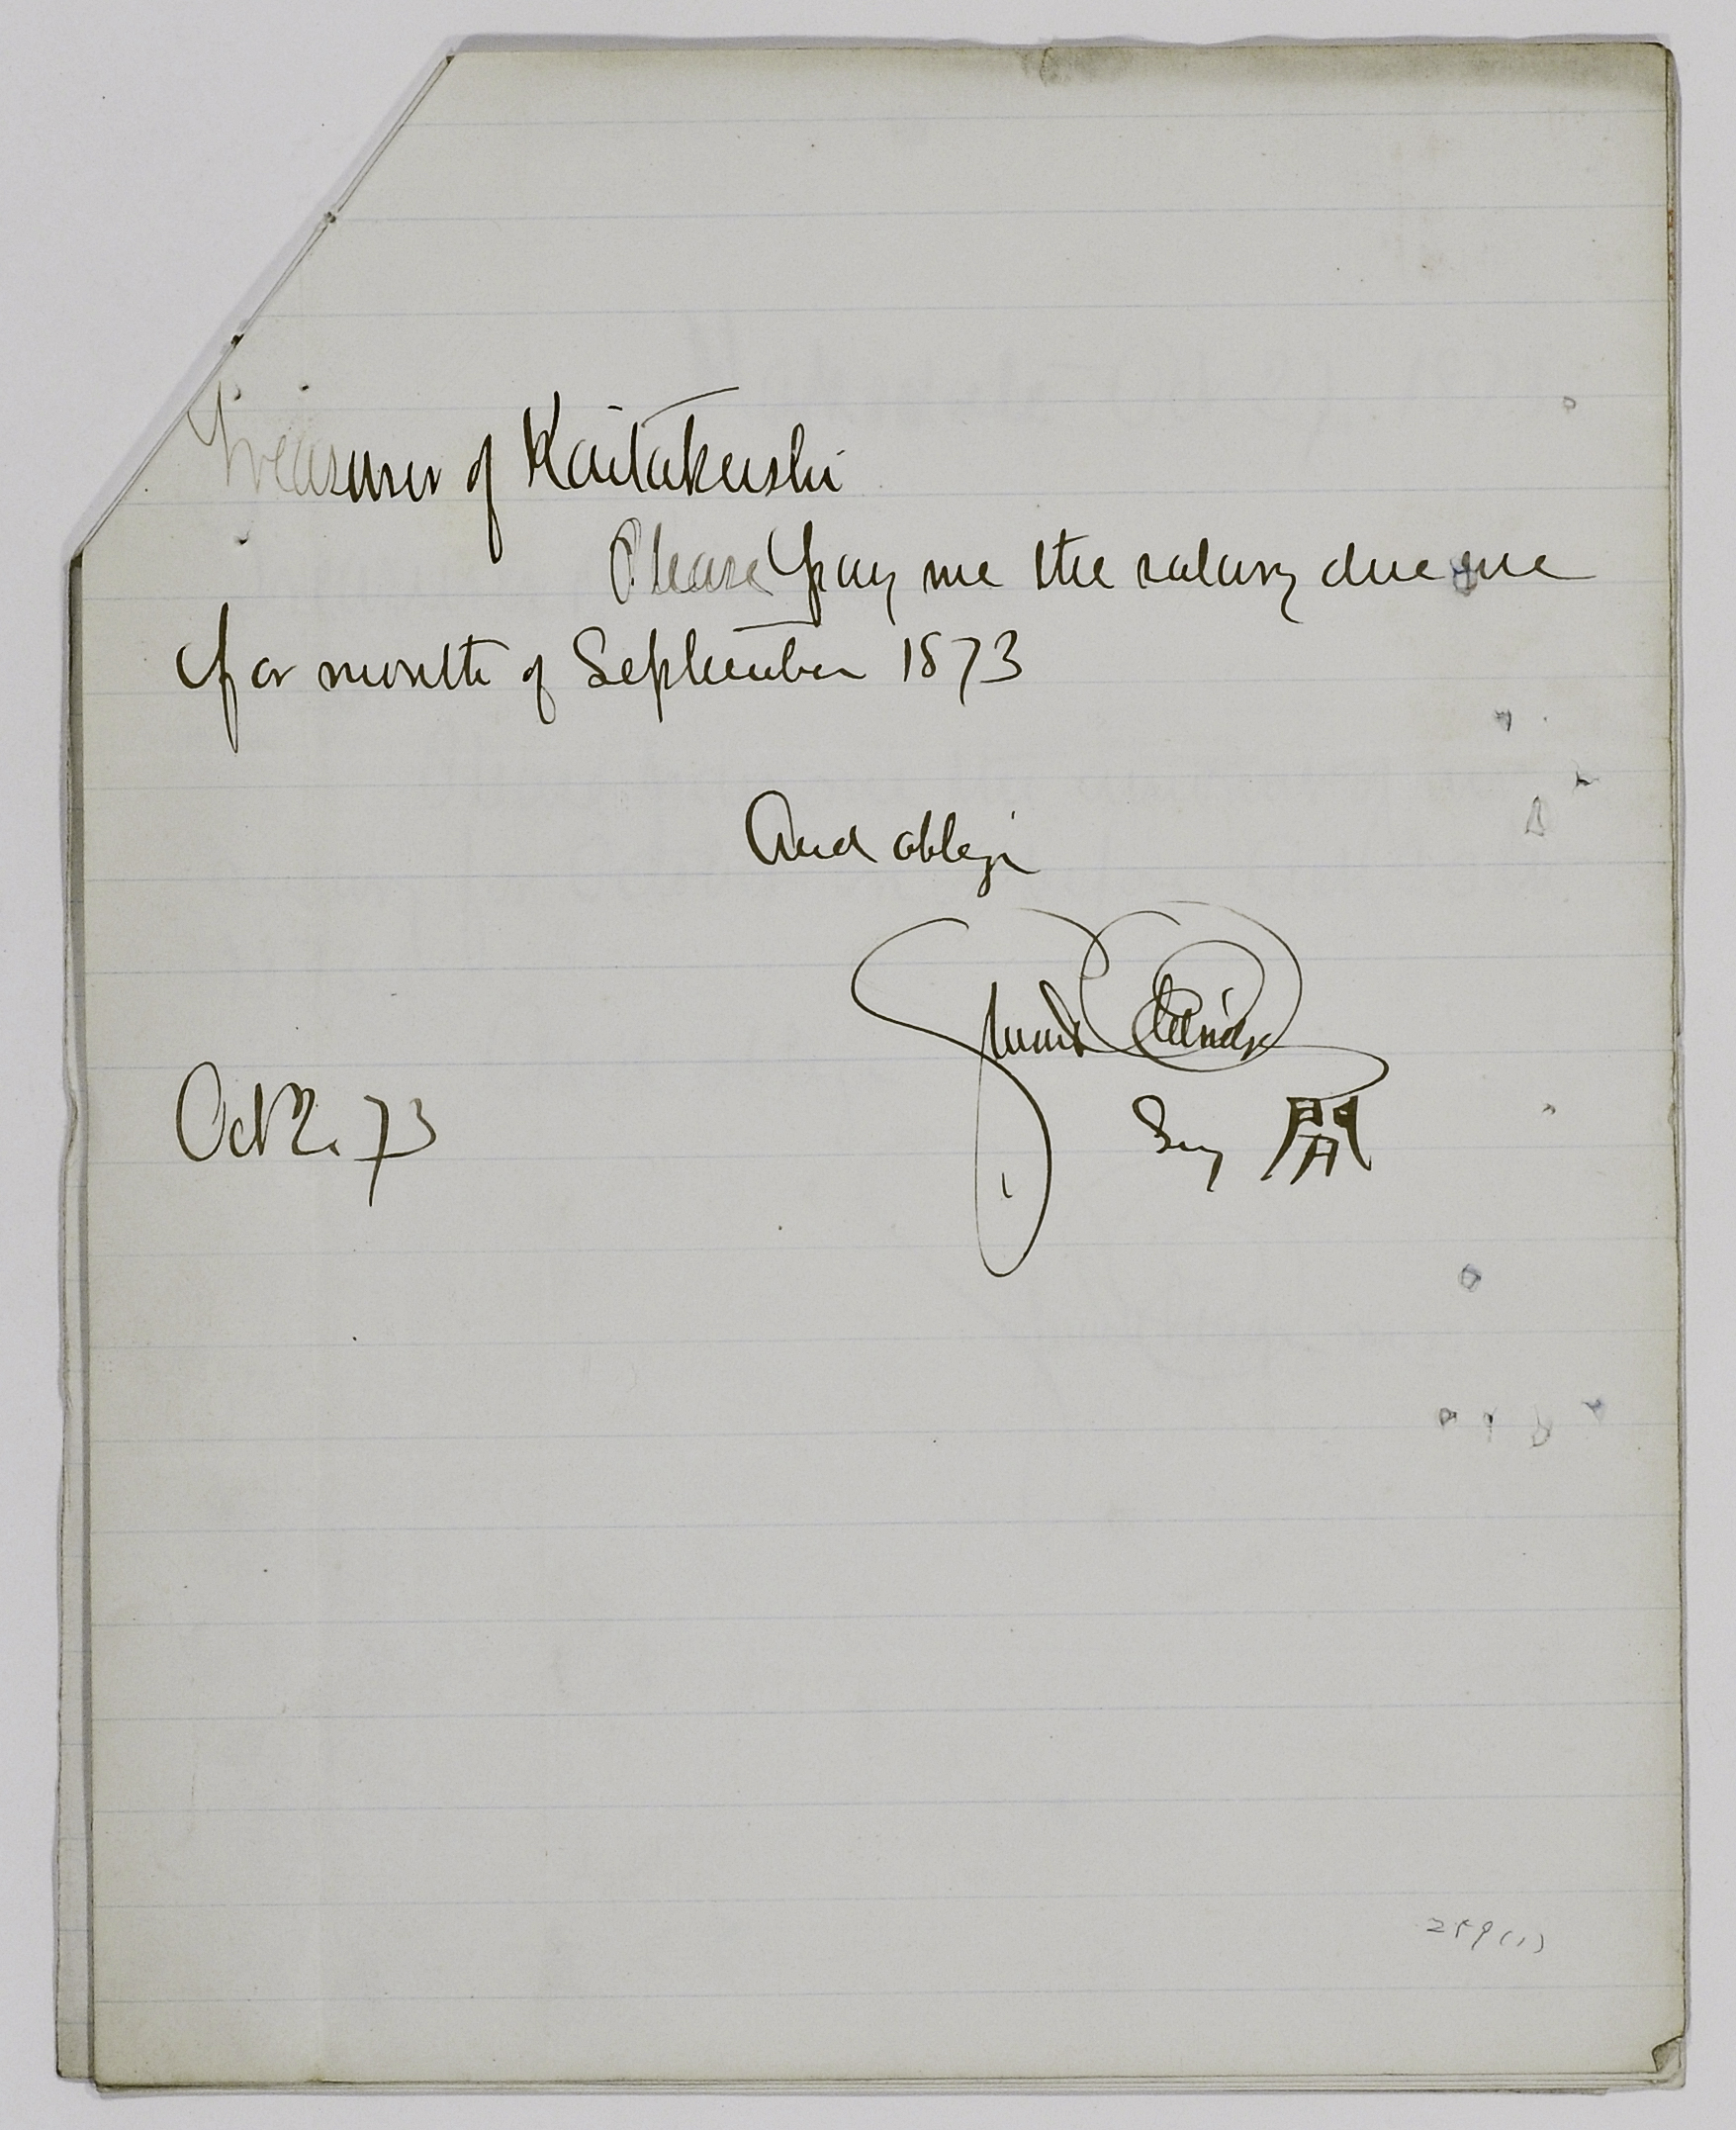 Treasurer of Kaitakushi
Please pay me the salary due me
for month of September 1873
And oblige
Stuart Eldridge
Oct 2. 73
Surg 開
289(1)